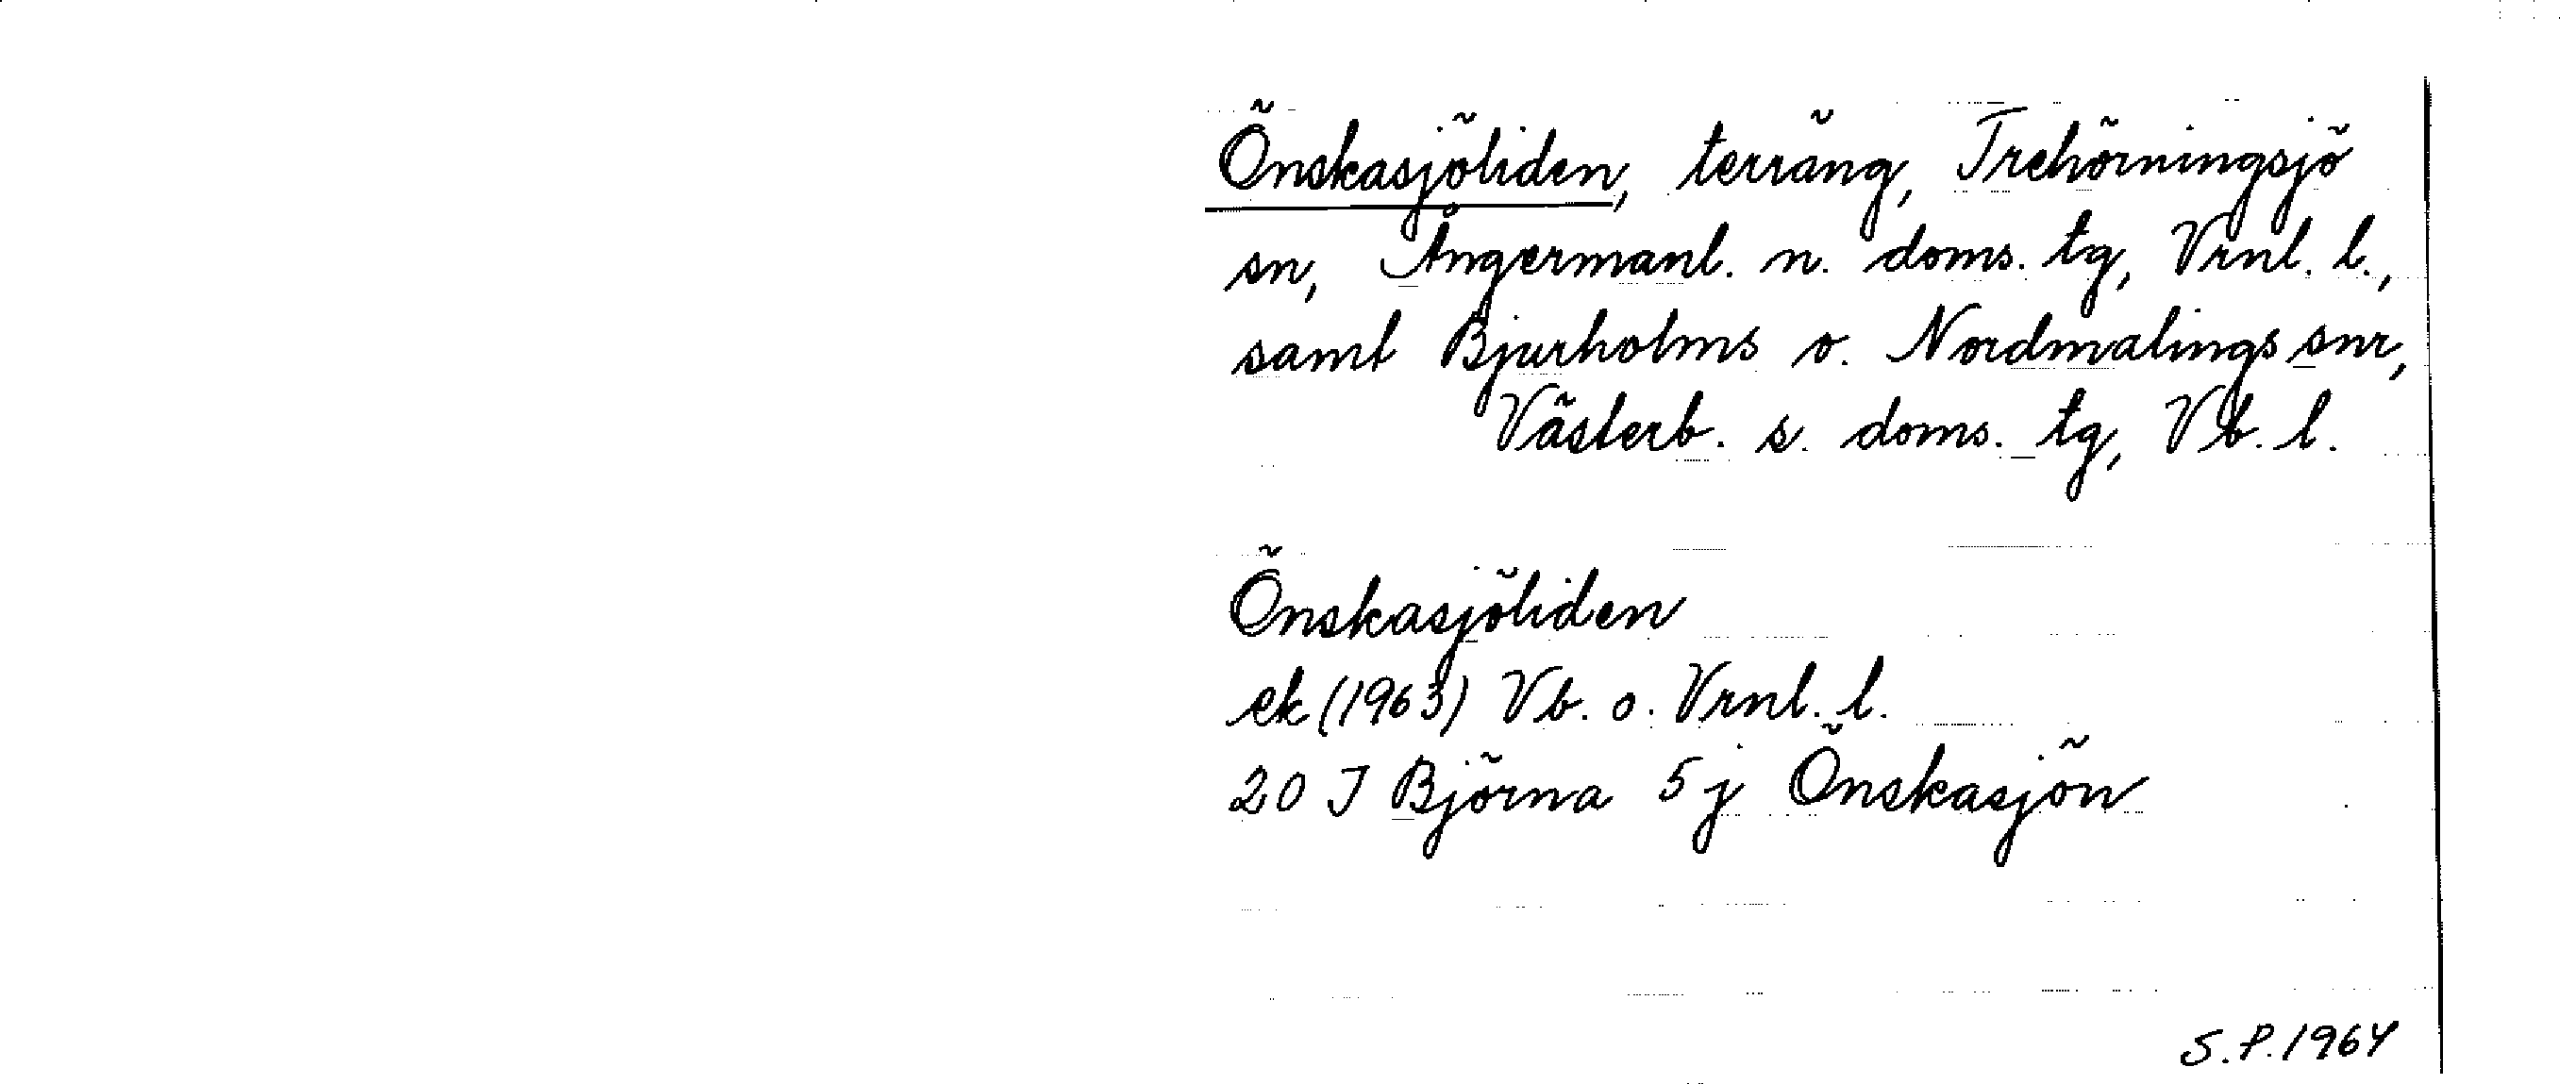 Önskasjöliden, terräng, Trehörningsjö
sn, Ångermanl. n. doms. tg, Vrnl. l.,
samt Bjurholms o. Nordmalings snr,
Västerb. s. doms. tg, Vb. l.
Önskasjöliden
ek (1963) Vb. o. Vrnl. l.
20 J Björna 5 j Önskasjön
S.P. 1964